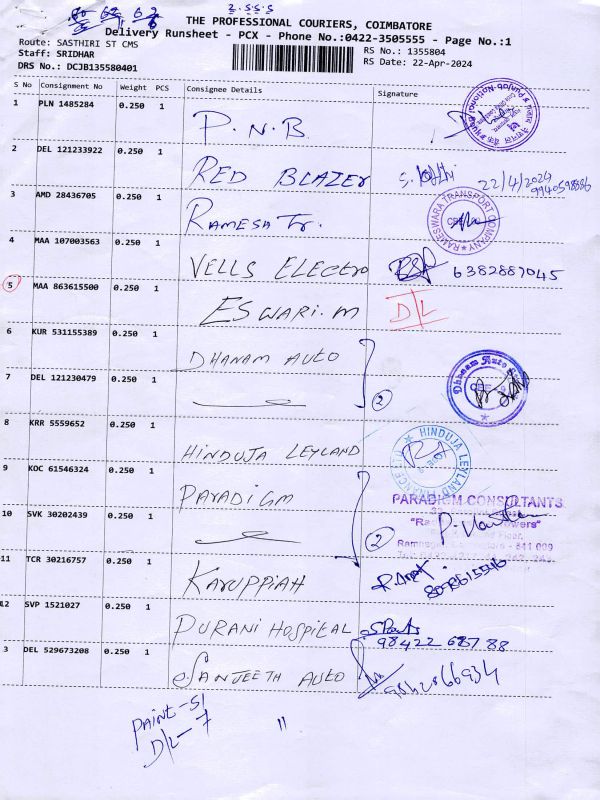 2.5.5.5
THE PROFESSIONAL COURIERS, COIMBATORE
Delivery Runsheet - PCX - Phone No.:0422-3505555 - Page No.:1
Route: SASTHIRI ST CMS
RS No.: 1355804
Staff: SRIDHAR
RS Date: 22-Apr-2024
DRS No.: DCJB135580401
S No Consignment No Weight PCS Consignee Details Signature
1 PLN 1485284 0.250 1 P.N.B.
2 DEL 121233922 0.250 1 RED BLAZER 22/4/2024
9940598886
3 AMD 28436705 0.250 1 RAMESA Tr. RAMESWARA TRANSPORT COMPANY
4 MAA 107003563 0.250 1 VELLS ELECTRO 6382887045
5 MAA 863615500 0.250 1 ESWARI.M D/L
6 KUR 531155389 0.250 1 DHANAM AUTO Dhanam Auto
7 DEL 121230479 0.250 1 2
8 KRR 5559652 0.250 1 HINDUJA LEYLAND HINDUJA LEYLAND FINANCE LTD
9 KOC 61546324 0.250 1 PARADIGM PARADIGM CONSULTANTS
10 SVK 30202439 0.250 1 2
11 TCR 30216757 0.250 1 KARUPPIAH
12 SVP 1521027 0.250 1 PURANI HOSPITAL 98422 68788
3 DEL 529673208 0.250 1 SANJEETH AUTO 9842866934
PAINT-51
D/L-7 "